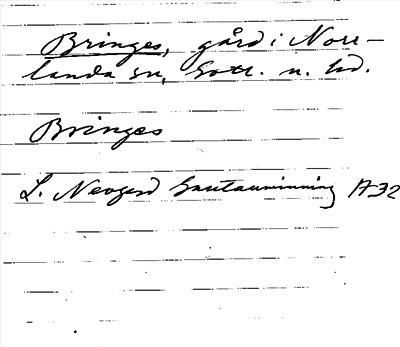 Bringes, gård i Norr-
landa sn, Gotl. n. hd.
Bringes
L. Nevgård Gautavinning A32